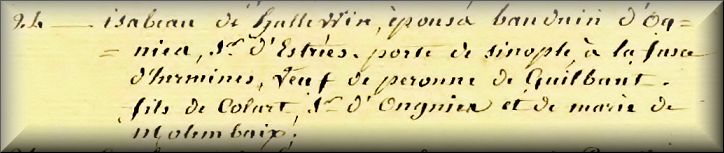 24 — isabeau de hallewin, épousa bauduin d'Og=
= nies, Sr. d'Estrées. porte de sinople, à la fasce
d'hermines, veuf de peronne de Guilbaut.
fils de Colart, Sr. d'Ongnies et de marie de
Molembaix,